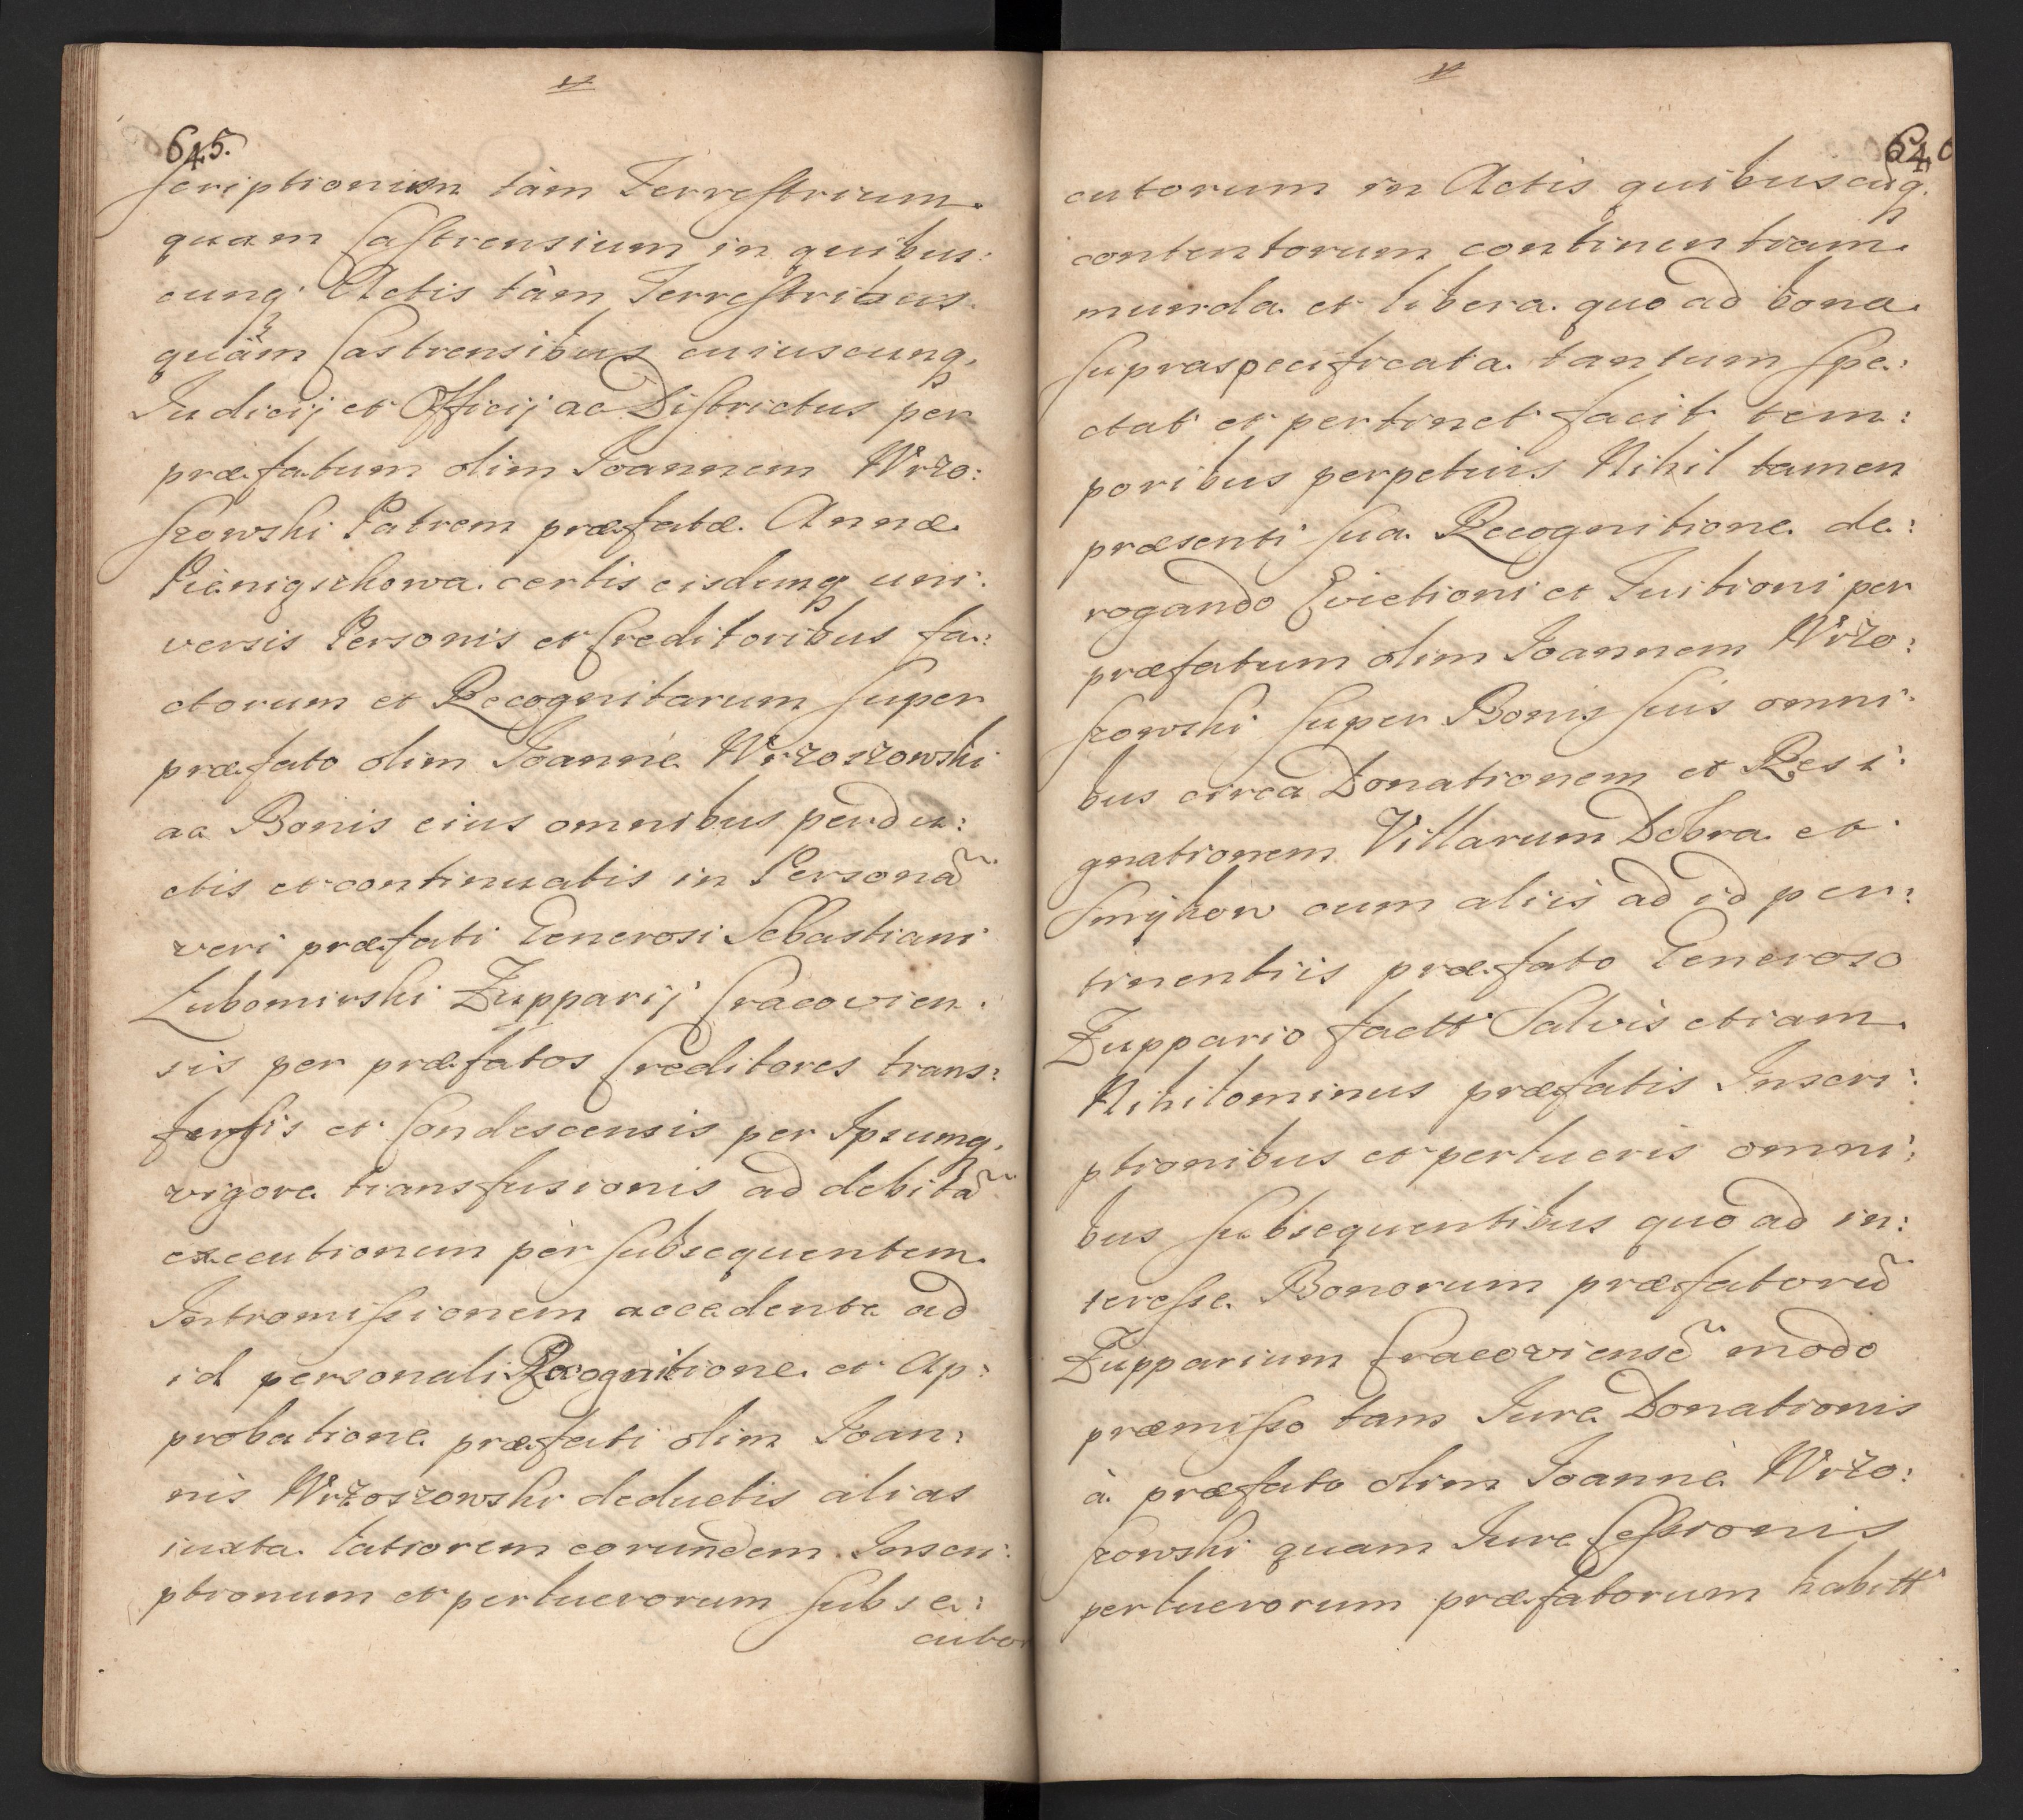 645.
scriptionum tàm Terrestrium
quam Castrensium in quibus:
cunq. Actis tàm Terrestribus
quàm Castrensibus cuiuscunq,
Iudicij et Officij ac Districtus per
præfatum olim Joannem Wrzo:
szowski Patrem præfatæ Annæ
Pieniązkowa certis eisdemq uni:
versis Personis et Creditoribus fa:
ctorum et Recognitarum super
præfato olim Joanne Wrzoszowski
ac Bonis eius omnibus perdu:
ctis et continuatis in Personã
veri præfati Generosi Sebastiani
Lubomirski Zupparij Cracovien:
sis per præfatos Creditores trans:
fusis et Condescensis per Ipsumq,
vigore transfusionis ad debitã
executionem per subsequentem
Intromissionem accedente ad
id personali Recognitione et Ap:
probatione præfati olim Joan:
nis Wrzoszowski deductis alias
iuxta latiorem eorundem Inscri:
ptionum et perlucrorum subse:
cutor
646
cutorum in Actis quibuscuq.
contentorum continentiam
munda et libera quo ad bona
supraspecificata tantum spe:
ctat et pertinet facit tem:
poribus perpetuis Nihil tamen
præsenti sua Recognitione de:
rogando Evictioni et Tuitioni per
præfatum olim Joannem Wrzo:
szowski super Bonis suis omni:
bus circa Donationem et Resi:
gnationem Villarum Dobra et
Smykow cum aliis ad id per:
tinentiis præfato Generoso
Zuppario factt Salvis etiam
Nihilominus præfatis Inscri:
ptionibus et perlucris omni:
bus subsequentibus quo ad in:
teresse Bonorum præfatorũ
Zupparium Cracoviensẽ modo
præmisso tam Iure Donationis
à præfato olim Joanne Wrzo:
szowski quam Iure Cessionis
perlucrorum præfatorum habitt